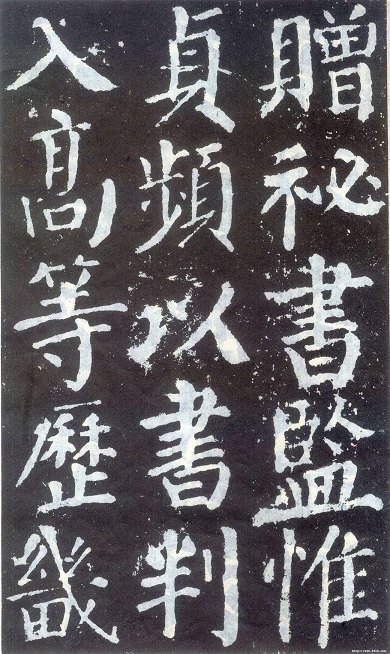 贈祕書監惟
貞頻以書判
入髙等歷畿